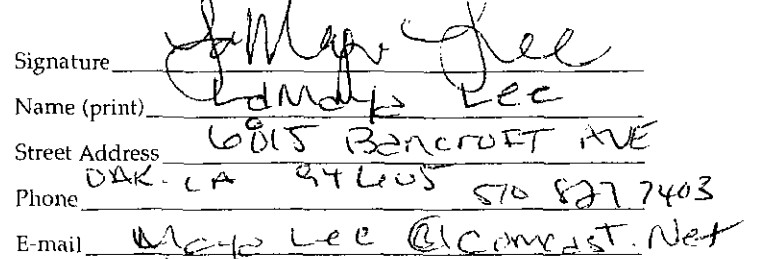 Signature Lee
Name (print) Lee
Street Address 6015 Bancroft AVE
OAK. CA 94605
Phone 510 827 7403
E-mail Lee @comcast.Net